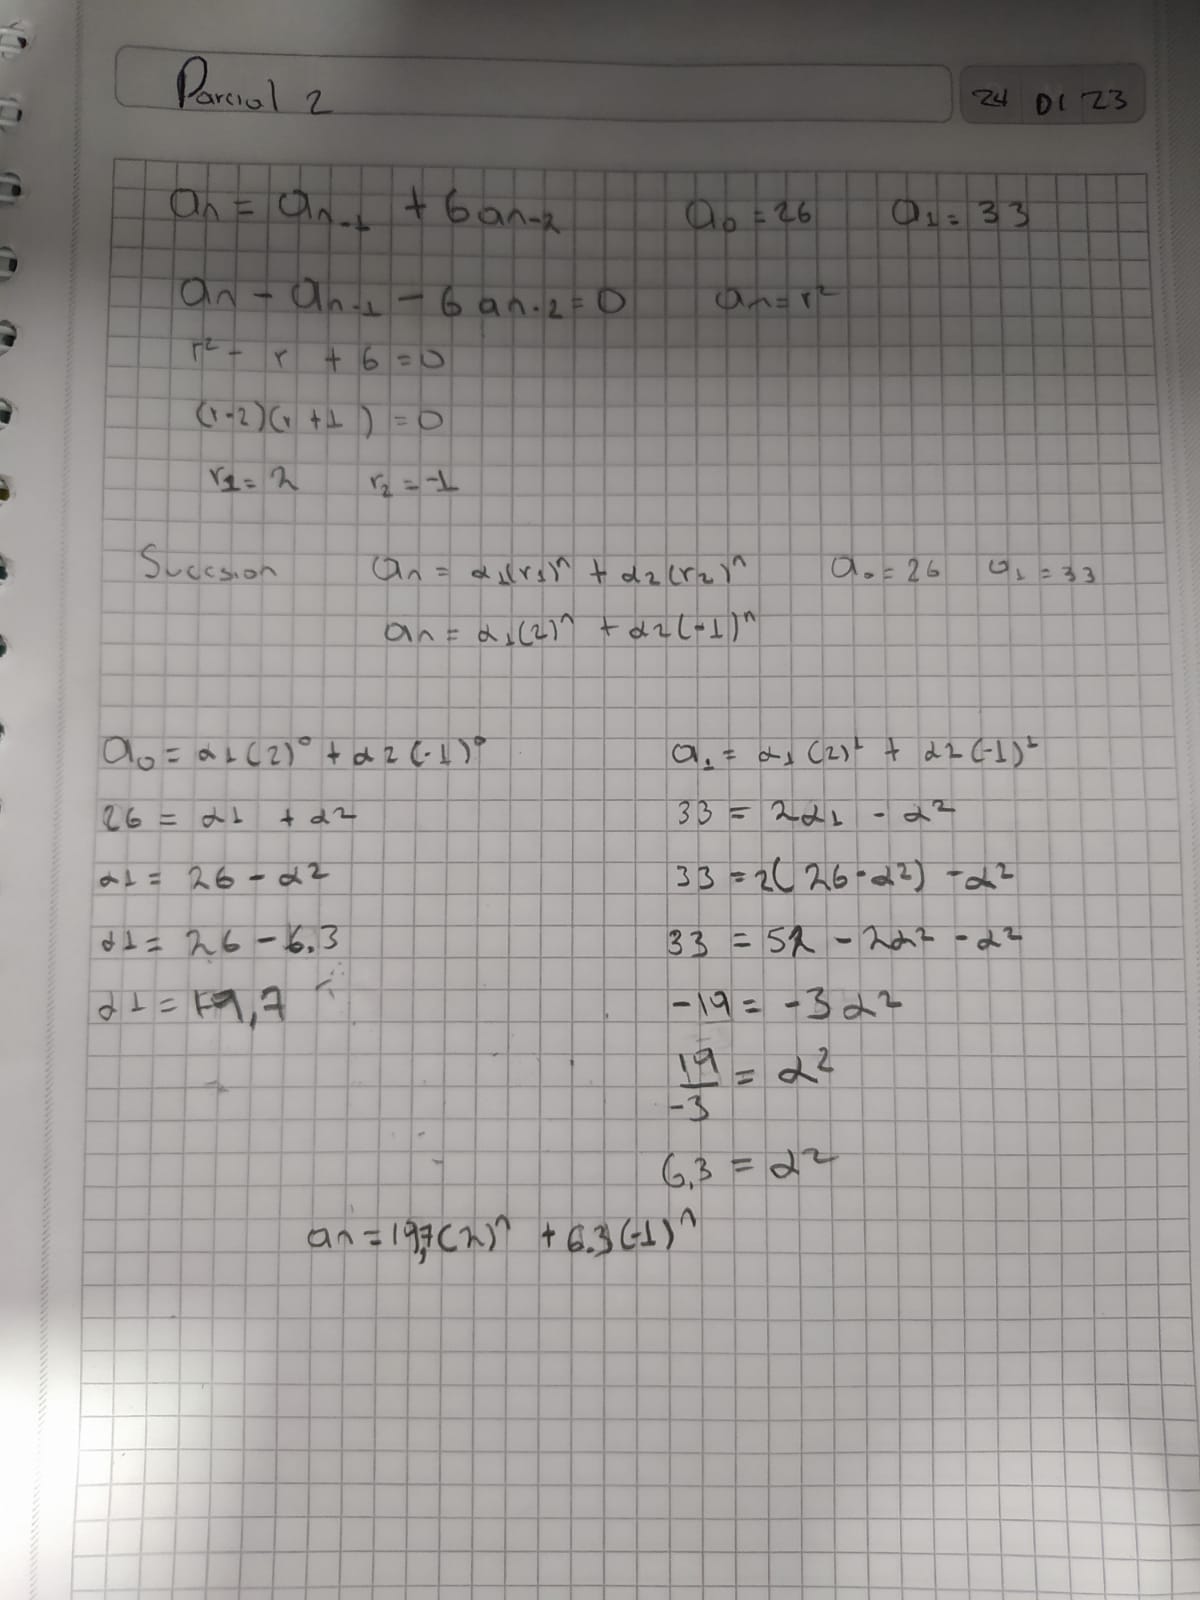 Parcial 2 24 01 23
an = an-1 + 6an-2 a0 = 26 a1 = 33
an - an-1 - 6an-2 = 0 an = r²
r² - r + 6 = 0
(r-2)(r+1) = 0
r1 = 2 r2 = -1
Succsion an = α1(r1)^n + α2(r2)^n a0 = 26 a1 = 33
an = α1(2)^n + α2(-1)^n
a0 = α1(2)⁰ + α2(-1)⁰
26 = α1 + α2
α1 = 26 - α2
α1 = 26 - 6.3
α1 = 19,7
a1 = α1(2)¹ + α2(-1)¹
33 = 2α1 - α2
33 = 2(26 - α2) - α2
33 = 52 - 2α2 - α2
-19 = -3α2
19/-3 = α2
6,3 = α2
an = 19,7(2)^n + 6.3(-1)^n